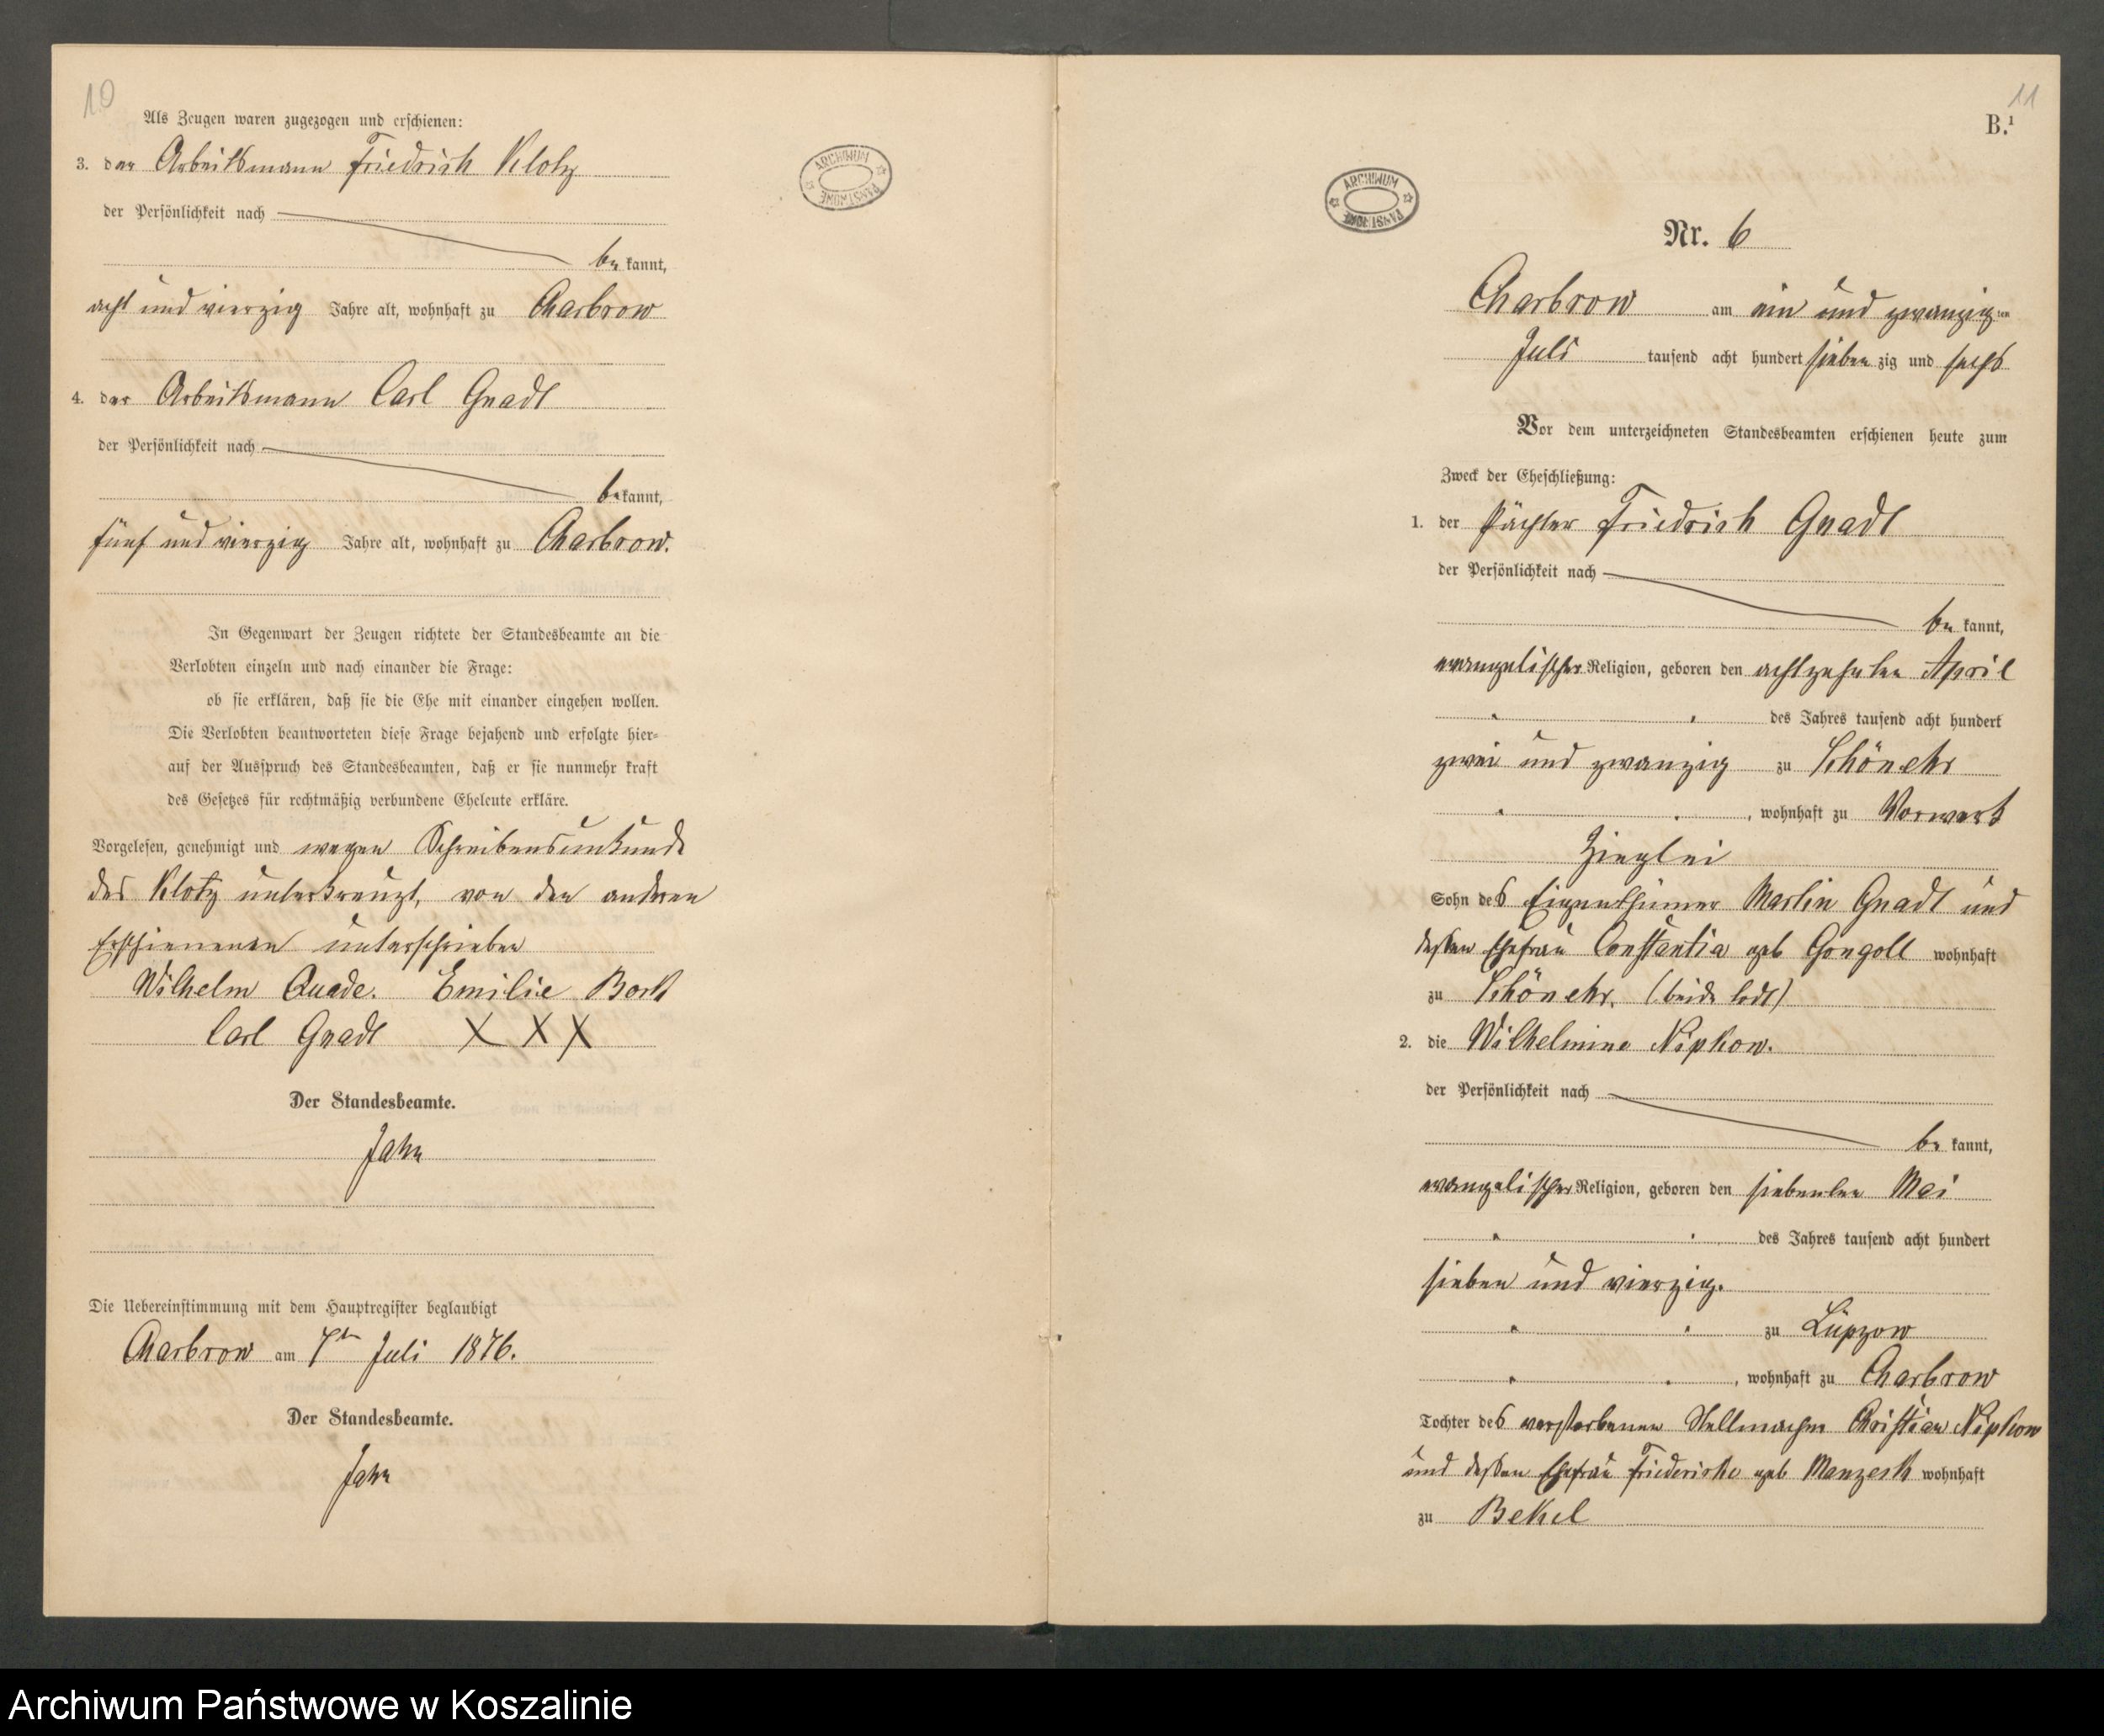 10
Als Zeugen waren zugezogen und erschienen:
3. der Arbeitsmann Friedrich Klotz
der Persönlichkeit nach
be kannt,
acht und vierzig Jahre alt, wohnhaft zu Charbrow
4. der Arbeitsmann Carl Gnadt
der Persönlichkeit nach
be kannt,
fünf und vierzig Jahre alt, wohnhaft zu Charbrow.
In Gegenwart der Zeugen richtete der Standesbeamte an die
Verlobten einzeln und nach einander die Frage:
ob sie erklären, daß sie die Ehe mit einander eingehen wollen.
Die Verlobten beantworteten diese Frage bejahend und erfolgte hier-
auf der Ausspruch des Standesbeamten, daß er sie nunmehr kraft
des Gesetzes für rechtmäßig verbundene Eheleute erkläre.
Vorgelesen, genehmigt und wegen Schreibensunkunde
des Klotz unterkreuzt, von den anderen
Erschienenen unterschrieben
Wilhelm Quade. Emilie Bork
Carl Gnadt X X X
Der Standesbeamte.
Jahn
Die Uebereinstimmung mit dem Hauptregister beglaubigt
Charbrow am 7ten Juli 1876.
Der Standesbeamte.
Jahn
ARCHIWUM PAŃSTWOWE
11
B.1
ARCHIWUM PAŃSTWOWE
Nr. 6
Charbrow am ein und zwanzigten
Juli tausend acht hundert sieben zig und sechs
Vor dem unterzeichneten Standesbeamten erschienen heute zum
Zweck der Eheschließung:
1. der Pächter Friedrich Gnadt
der Persönlichkeit nach
be kannt,
evangelischer Religion, geboren den achtzehnten April
des Jahres tausend acht hundert
zwei und zwanzig zu Schönehr
, wohnhaft zu Vorwerk
Zieglei
Sohn des Eigenthümer Martin Gnadt und
dessen Ehefrau Constantia geb Gongoll wohnhaft
zu Schönehr. (beide todt)
2. die Wilhelmine Nipkow.
der Persönlichkeit nach
be kannt,
evangelischer Religion, geboren den siebenten Mai
des Jahres tausend acht hundert
sieben und vierzig.
zu Lüpzow
, wohnhaft zu Charbrow
Tochter des verstorbenen Stellmacher Christian Nipkow
und dessen Ehefrau Friederike geb Manzesk wohnhaft
zu Bekel
Archiwum Państwowe w Koszalinie